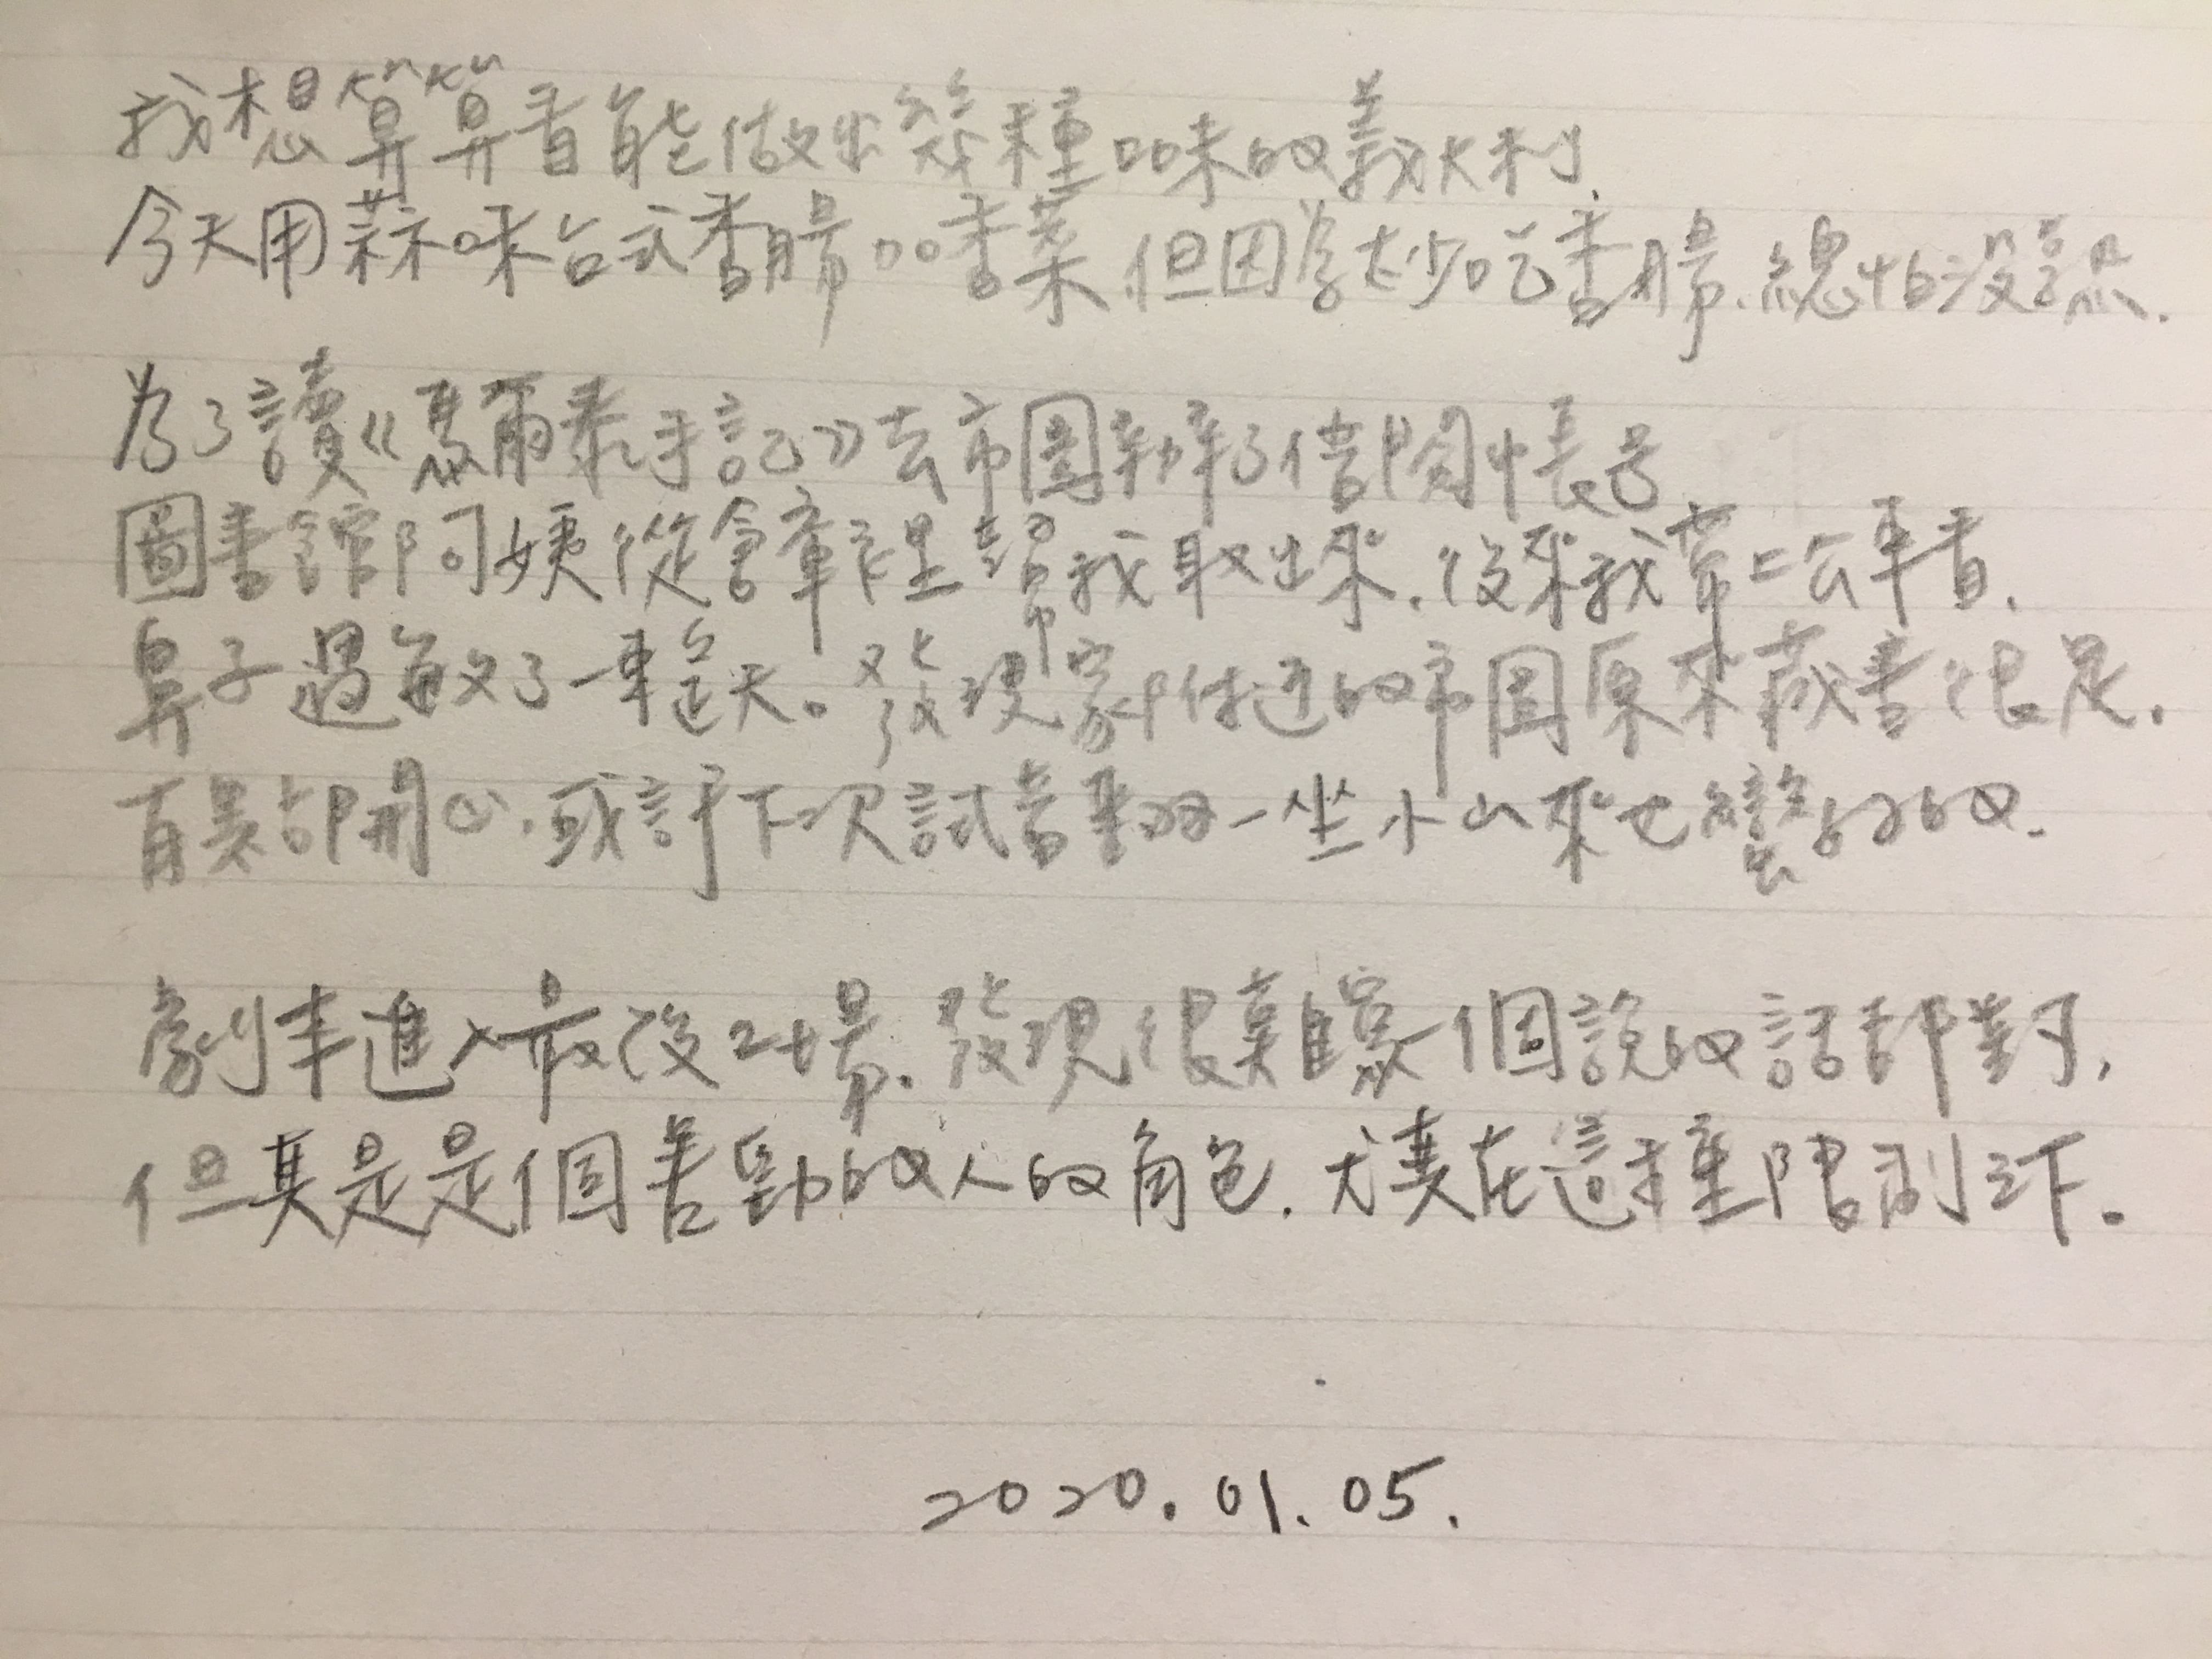 我想算算看能做出幾種口味的義大利
今天用蒜味台式香腸加香菜 但因為太少吃香腸.總怕沒熟.
為了讀《馬爾泰手記》去市圖辦了借閱帳号
圖書館阿姨從倉庫裡幫我取出來.後來我帶上公車看.
鼻子過敏了一整天。發現家附近的市圖原來藏書很足.
有點開心.或許下次試著爬一坐小山來也蠻好的.
劇本進入最後2場.發現很難每一個說的話都對,
但真是是個善動的人的角色.尤其在這種限制之下。
2020.01.05.